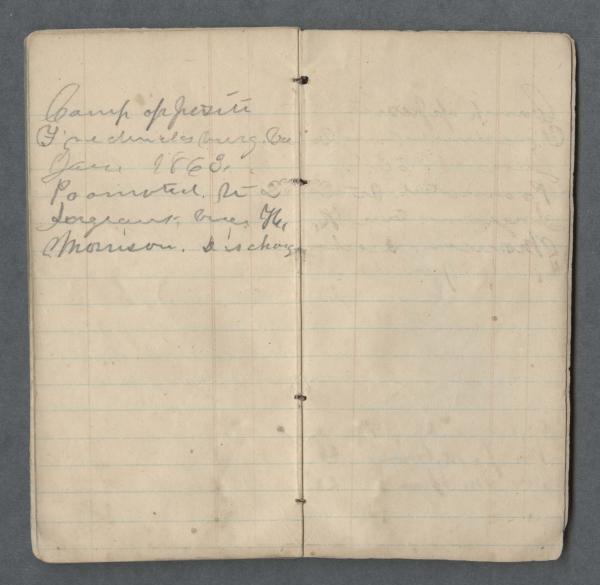 Camp oppisiti
Fredricksburg. Va
Jan. 1863.
Poomoted. to 2
Sargeant. vice. H,
Morrison. dischag